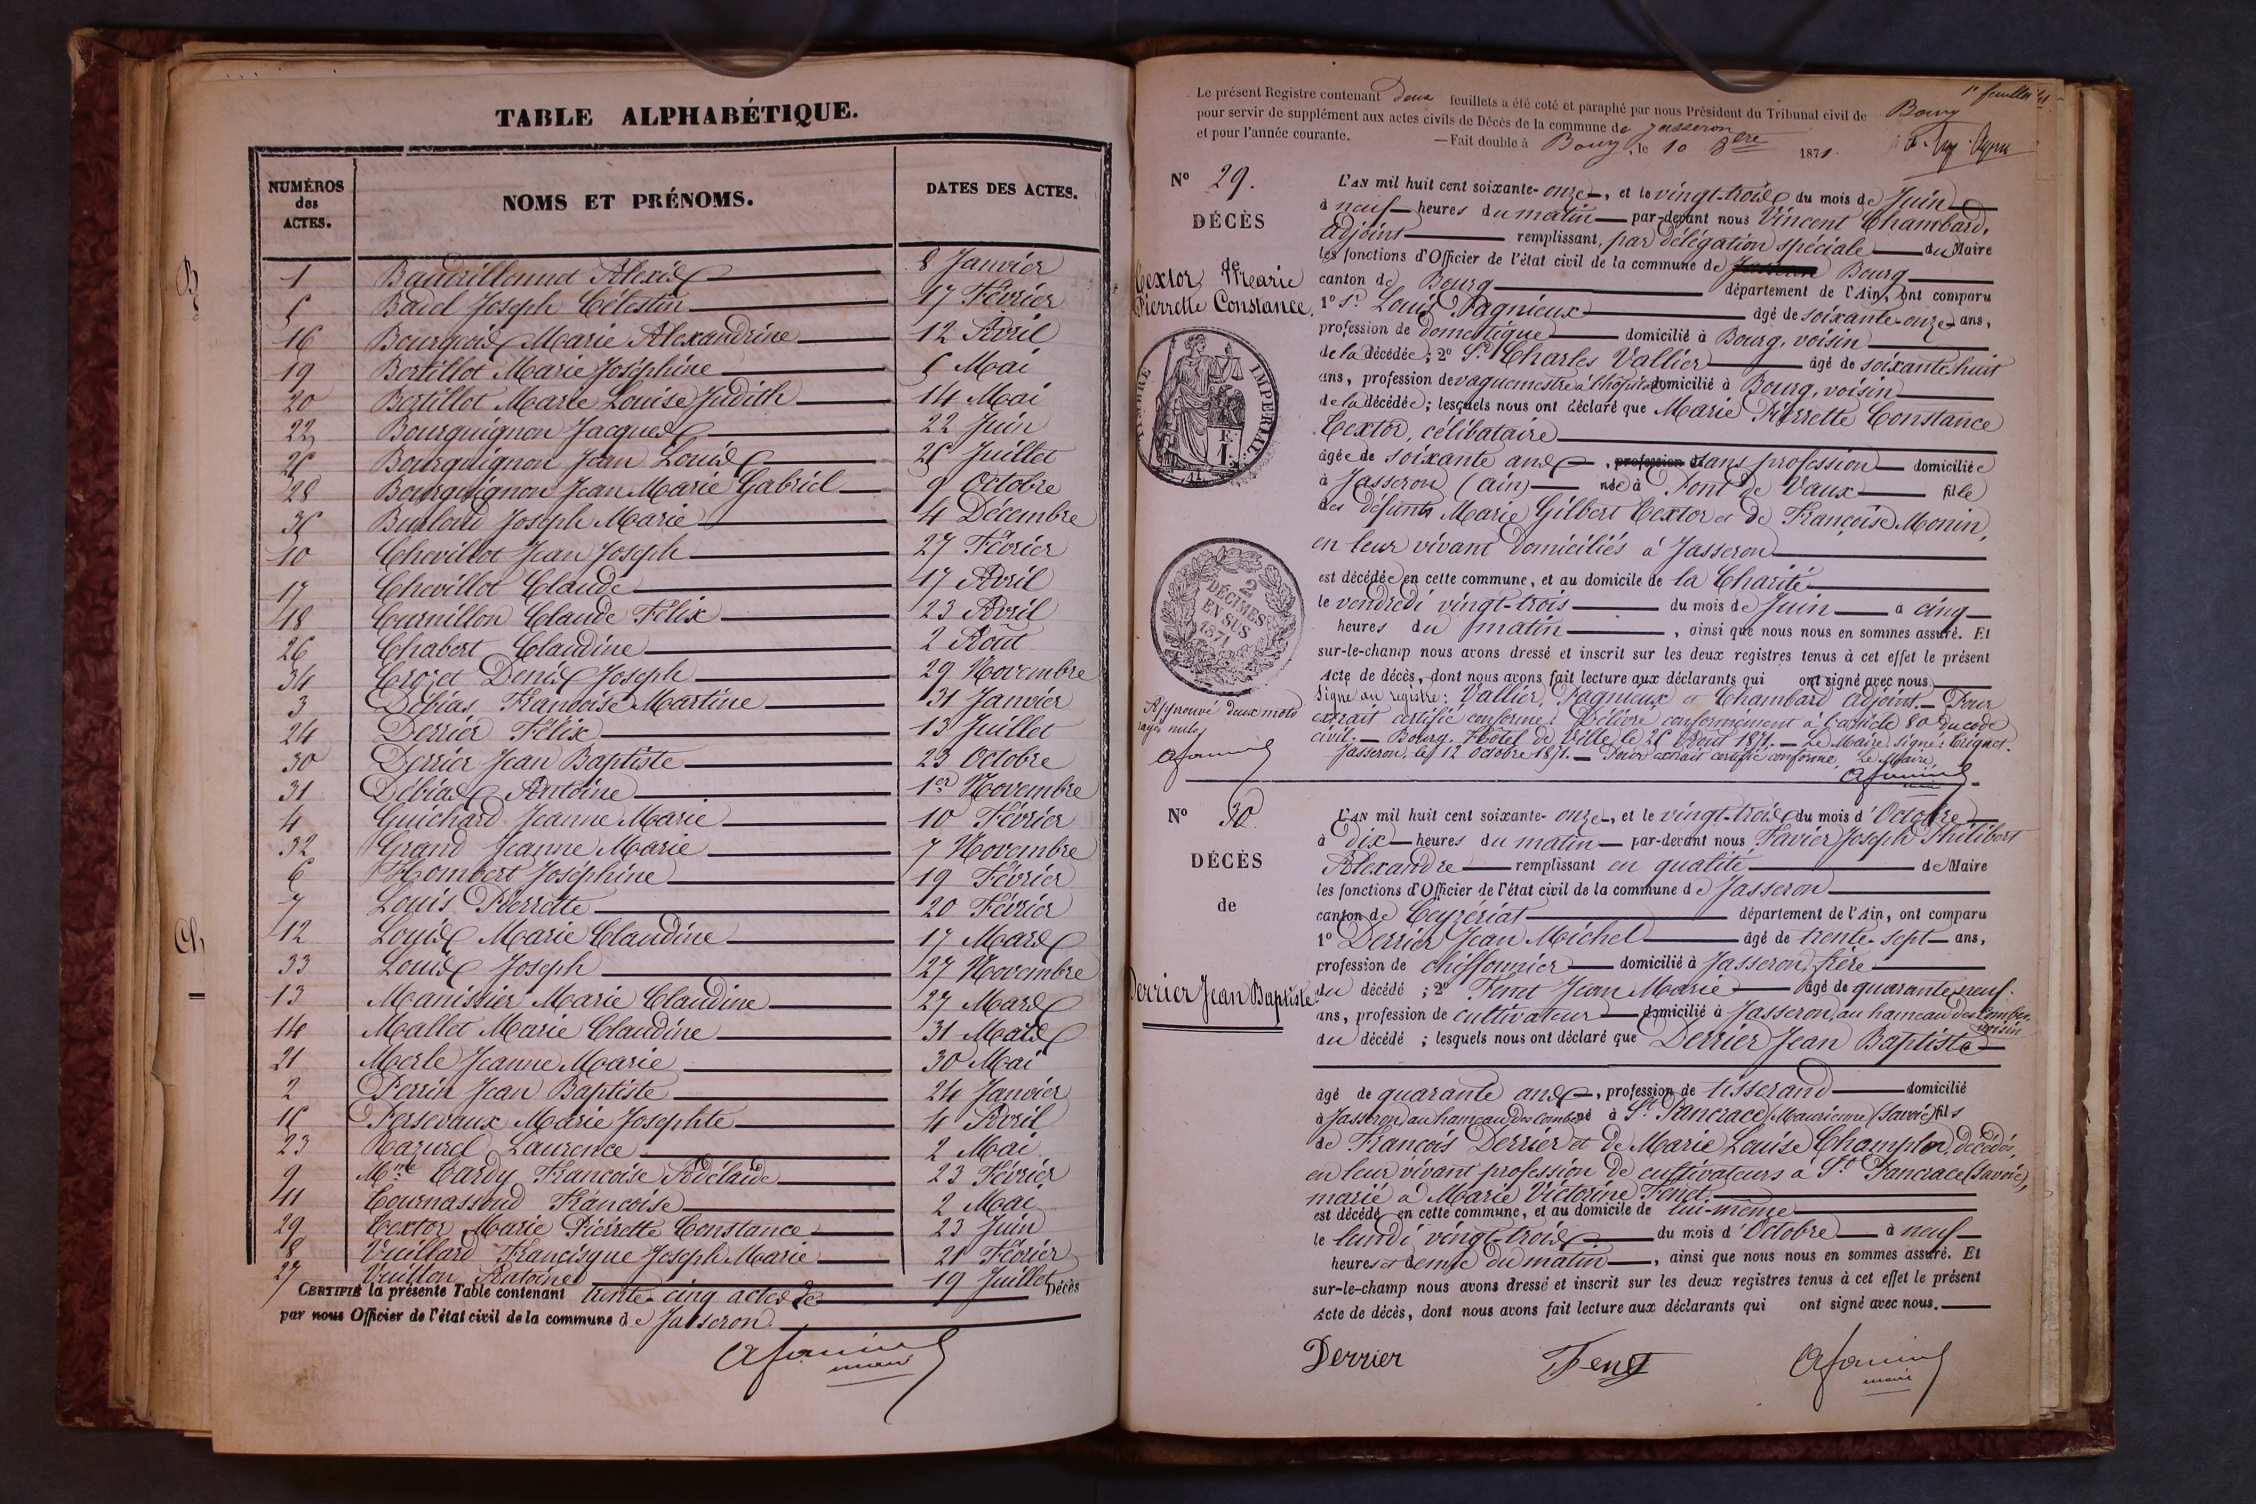 TABLE ALPHABÉTIQUE.
NUMÉROS des ACTES.
NOMS ET PRÉNOMS.
DATES DES ACTES.
1 Baudrillonnot Alexis 8 Janvier
5 Badel Joseph Célestin 17 Février
16 Bourgeois Marie Alexandrine 12 Avril
19 Bertillot Marie Joséphine 6 Mai
20 Bertillot Marie Louise Judith 14 Mai
22 Bourguignon Jacques 22 Juin
25 Bourguignon Jean Louis 25 Juillet
28 Bourguignon Jean Marie Gabriel 9 Octobre
35 Joseph Marie 4 Décembre
10 Chevillot Jean Joseph 27 Février
17 Chevillot Claude 17 Avril
18 Curnillon Claude Félix 23 Avril
26 Chabert Claudine 2 Août
34 Crozet Denis Joseph 29 Novembre
3 Débias Françoise Martine 31 Janvier
24 Derrier Félix 13 Juillet
30 Derrier Jean Baptiste 23 Octobre
31 Débias Antoine 1er Novembre
4 Guichard Jeanne Marie 10 Février
32 Grand Jeanne Marie 7 Novembre
6 Hombert Joséphine 19 Février
7 Louis Pierrette 20 Février
12 Louis Marie Claudine 17 Mars
33 Louis Joseph 27 Novembre
13 Manissier Marie Claudine 27 Mars
14 Mallet Marie Claudine 31 Mars
21 Merle Jeanne Marie 30 Mai
2 Perrin Jean Baptiste 24 Janvier
15 Persevaux Marie Josephte 4 Avril
23 Razurel Laurence 2 Mai
9 Mme Tardy Françoise Adélaïde 23 Février
11 Tournassoud Françoise 2 Mai
29 Textor Marie Pierrette Constance 23 Juin
8 Vuillard Francisque Joseph Marie 21 Février
27 Vuillon Antoine 19 Juillet
CERTIFIÉ la présente Table contenant trente-cinq actes de Décès
par nous Officier de l'état civil de la commune de Jasseron.
maire
B
Ch
1er feuillet
Le présent Registre contenant deux feuillets a été coté et paraphé par nous Président du Tribunal civil de Bourg
pour servir de supplément aux actes civils de Décès de la commune de Jasseron
et pour l'année courante. —Fait double à Bourg, le 10 8bre 1871.
N° 29.
DÉCÈS
de
Textor Marie
Pierrette Constance.
TIMBRE IMPÉRIAL
2 DÉCIMES EN SUS 1871
Approuvé deux mots
rayés nuls
L'AN mil huit cent soixante-onze, et le vingt-trois du mois de Juin
à neuf heures du matin par-devant nous Vincent Chambard,
Adjoint remplissant, par délégation spéciale du Maire
les fonctions d'Officier de l'état civil de la commune de Jasseron Bourg
canton de Bourg département de l'Ain, ont comparu
1° Sr Louis Pagnieux âgé de soixante-onze ans,
profession de domestique domicilié à Bourg, voisin
de la décédée; 2° Sr Charles Vallier âgé de soixante-huit
ans, profession de vaguemestre à l'hôpital domicilié à Bourg, voisin
de la décédée; lesquels nous ont déclaré que Marie Pierrette Constance
Textor, célibataire
âgée de soixante ans, profession d sans profession domiciliée
à Jasseron (ain) née à Pont de Vaux fille
des défunts Marie Gilbert Textor et de Françoise Monin,
en leur vivant domiciliés à Jasseron
est décédée en cette commune, et au domicile de la Charité
le vendredi vingt-trois du mois de Juin à cinq
heures du matin, ainsi que nous nous en sommes assuré. Et
sur-le-champ nous avons dressé et inscrit sur les deux registres tenus à cet effet le présent
Acte de décès, dont nous avons fait lecture aux déclarants qui ont signé avec nous.
Signé au registre: Vallier, Pagnieux et Chambard adjoint. — Pour
extrait certifié conforme: Délivré conformément à l'article 80 du code
civil. — Bourg. Hôtel de Ville, le 25 Août 1871. — Le Maire signé:
Jasseron, le 12 Octobre 1871. — Pour extrait certifié conforme, Le Maire,
N° 30.
DÉCÈS
de
Derrier Jean Baptiste
L'AN mil huit cent soixante-onze, et le vingt-trois du mois d'Octobre
à dix heures du matin par-devant nous Favier Joseph Philibert
Alexandre remplissant en qualité de Maire
les fonctions d'Officier de l'état civil de la commune de Jasseron
canton de Ceyzériat département de l'Ain, ont comparu
1° Derrier Jean Michel âgé de trente-sept ans,
profession de chiffonnier domicilié à Jasseron, frère
du décédé; 2° Fenet Jean Marie âgé de quarante-neuf
ans, profession de cultivateur domicilié à Jasseron, au hameau des Combes,
voisin
du décédé; lesquels nous ont déclaré que Derrier Jean Baptiste
âgé de quarante ans, profession de tisserand domicilié
à Jasseron au hameau des Combes né à St Pancrace Maurienne (Savoie) fils
de François Derrier et de Marie Louise Champlon, décédés,
en leur vivant profession de cultivateurs à St Pancrace (Savoie),
marié à Marie Victorine Fenet.
est décédé en cette commune, et au domicile de lui-même
le lundi vingt-trois du mois d'Octobre à neuf
heures et demie du matin, ainsi que nous nous en sommes assuré. Et
sur-le-champ nous avons dressé et inscrit sur les deux registres tenus à cet effet le présent
Acte de décès, dont nous avons fait lecture aux déclarants qui ont signé avec nous.
Derrier Fenet
maire